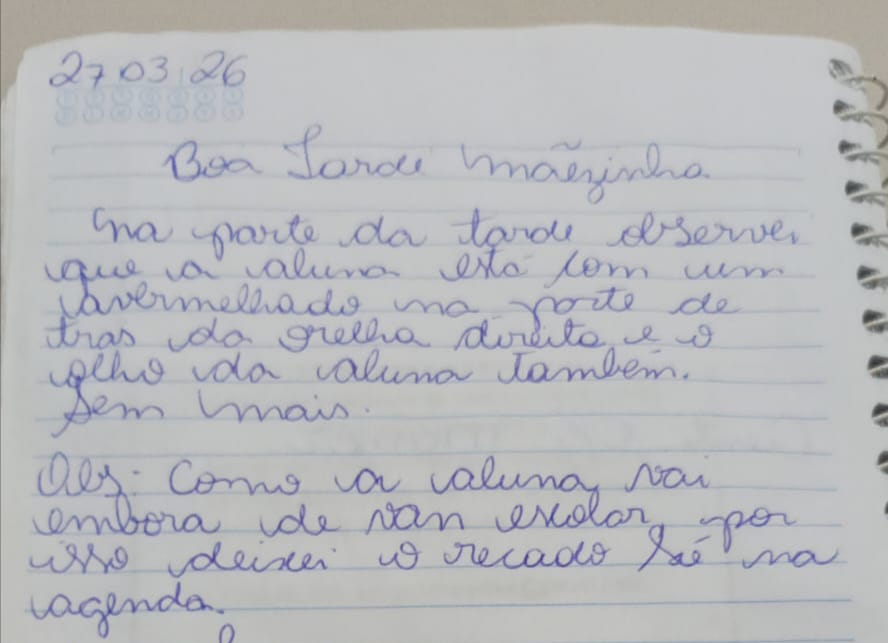 27 03 26
Boa Tarde mãezinha
na parte da tarde observei
que a aluna está com um
avermelhado na parte de
tras da orelha direita e o
olho da aluna também.
Sem mais.
Obs: Como a aluna vai
embora de van escolar, por
isso deixei o recado só na
agenda.